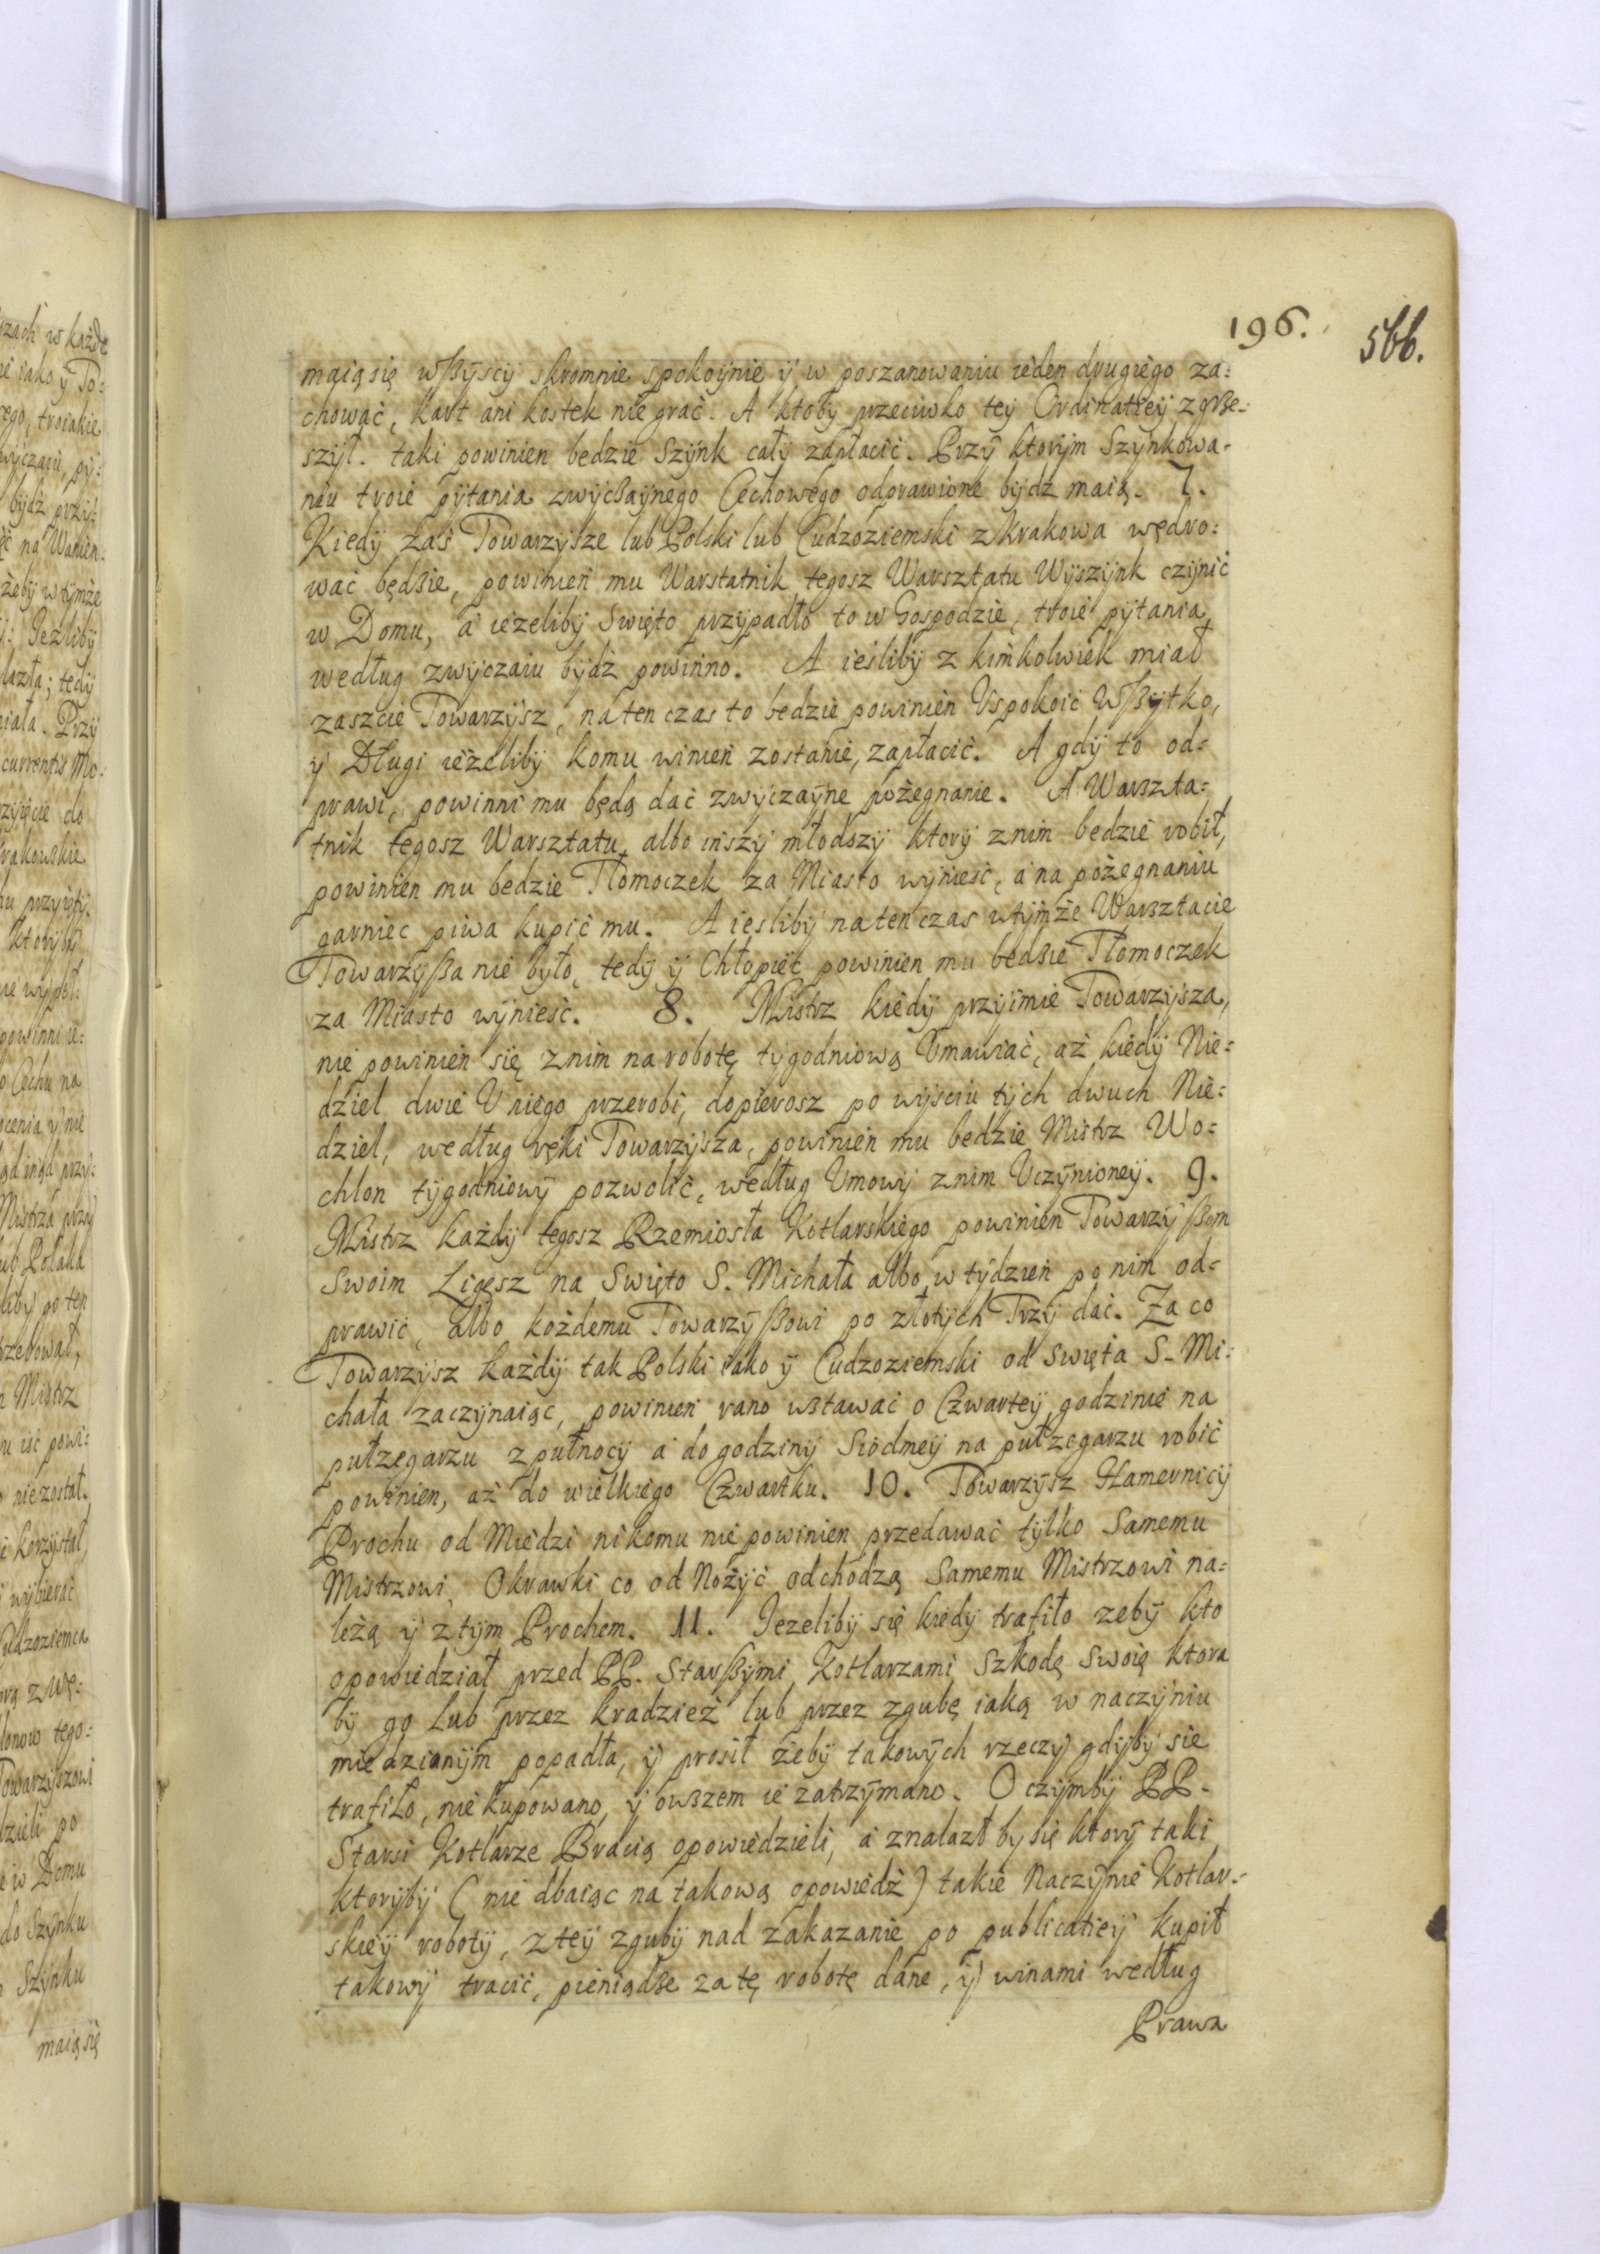 196.
566.
maią się wßÿscÿ skromnie spokoÿnie ÿ w poszanowaniu ieden drugiego za=
chować, kart ani kostek nie grać. A ktoby przeciwko teÿ Ordinatieÿ zgrze=
szÿł. taki powinien bedzie Szÿnk całÿ zapłacić. Przÿ ktorÿm Szÿnkowa=
niu troie pÿtania zwÿcßaÿnego Cechowego odprawione bÿdz maią. 7.
Kiedÿ zas Towarzÿsze lub Polski lub Cudzoziemski z Krakowa wędro=
wać będßie, powinien mu Warstatnik tegosz Warsztatu Wÿszÿnk czÿnić
w Domu, a ieżelibÿ Swięto przÿpadło to w Gospodzie, troie pÿtania
według zwÿczaiu bÿdź powinno. A ieślibÿ z kimkolwiek miał
zaszcie Towarzÿsz, na ten czas to bedzie powinien Vspokoić wßÿtko,
ÿ Długi ieżelibÿ komu winien zostanie, zapłacić. A gdÿ to od=
prawi, powinni mu będą dać zwÿczaÿne pożegnanie. A Warszta=
tnik tegosz Warsztatu, albo inszÿ młodszÿ ktorÿ znim bedzie robił,
powinien mu bedzie Tłomoczek za Miasto wÿnieść, a na pożegnaniu
garniec piwa kupić mu. A ieslibÿ na ten czas wtÿmże Warsztacie
Towarzÿßa nie było, tedÿ ÿ Chłopiec powinien mu bedßie Tłomoczek
za Miasto wÿnieść. 8. Mistrz kiedÿ przÿimie Towarzÿsza,
nie powinien się znim na robotę tÿgodniową Vmawiać, aż kiedÿ Nie=
dziel dwie V niego przerobi, dopierosz po wÿsciu tÿch dwuch Nie=
dziel, według ręki Towarzÿsza, powinien mu bedzie Mistrz Wo=
chlon tÿgodniowÿ pozwolić, według Vmowÿ znim Vczÿnioneÿ. 9.
Mistrz każdÿ tegosz Rzemiosła Kotlarskiego powinien Towarzÿßom
swoim Ligesz na Swięto S. Michała albo w tÿdzien po nim od=
prawić, albo kożdemu Towarzÿßowi po złotÿch Trzÿ dać. Za co
Towarzÿsz każdÿ tak Polski iako ÿ Cudzoziemski od swięta S. Mi=
chała zaczÿnaiąc, powinien rano wstawać o Czwarteÿ godzinie na
pułzegarzu z pułnocÿ a do godzinÿ Siodmeÿ na pułzegarzu robić
powinien, aż do wielkiego Czwartku. 10. Towarzÿsz Hamernicÿ
Prochu od Miedzi nikomu nie powinien przedawać tÿlko Samemu
Mistrzowi, Okrawki co od Nożÿć odchodzą Samemu Mistrzowi na=
leżą ÿ z tÿm Prochem. 11. Iezelibÿ się kiedÿ trafiło zebÿ kto
opowiedział przed PP. Starßÿmi Kotlarzami Szkodę swoię ktora
bÿ go lub przez kradzież lub przez zgubę iaką w naczÿniu
miedzianÿm popadła, ÿ prosił żebÿ takowÿch rzeczÿ gdÿbÿ sie
trafiło, nie kupowano, ÿ owszem ie zatrzÿmano. O czÿmbÿ PP.
Starsi Kotlarze Bracią opowiedzieli, a znalazł by się ktorÿ taki
ktorÿbÿ (nie dbaiąc na takową opowiedź) takie Naczÿnie Kotlar=
skieÿ robotÿ, z teÿ zgubÿ nad zakazanie po publicatieÿ kupił
takowÿ tracić, pieniądße za tę robotę dane, ÿ winami według
Prawa